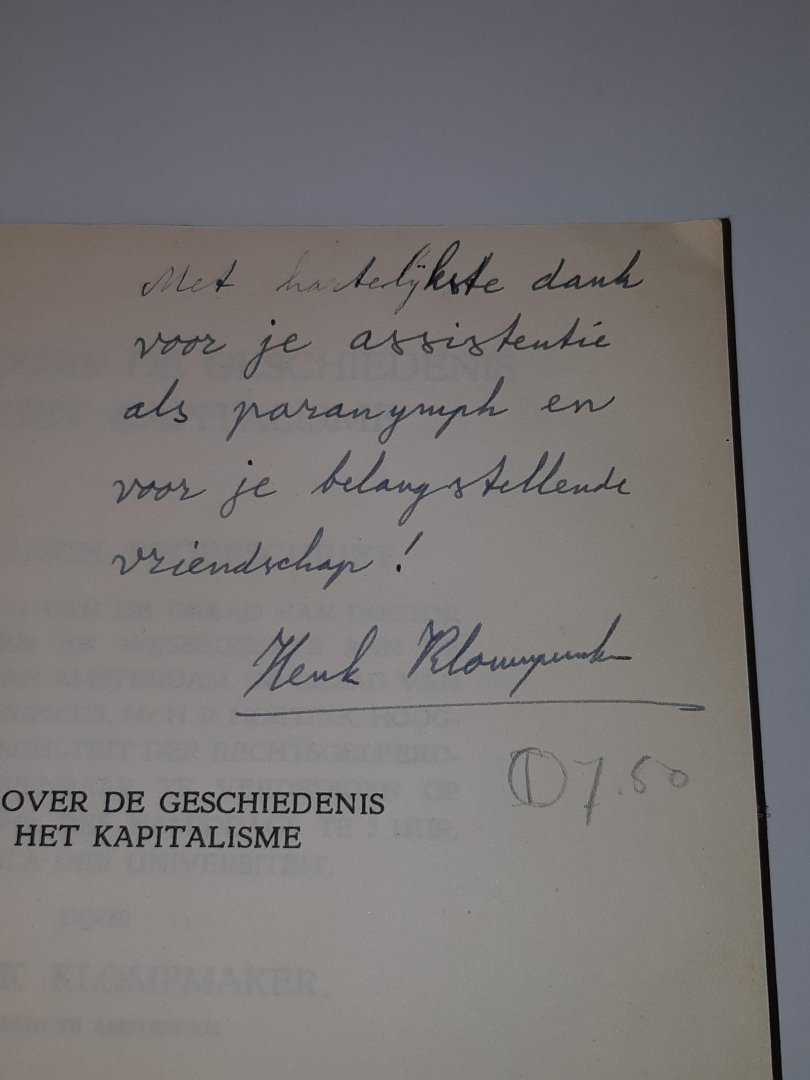 Met hartelijkste dank
voor je assistentie
als paranymph en
voor je belangstellende
vriendschap!
Henk Klompmaker
7.50
OVER DE GESCHIEDENIS
HET KAPITALISME
KLOMPMAKER.